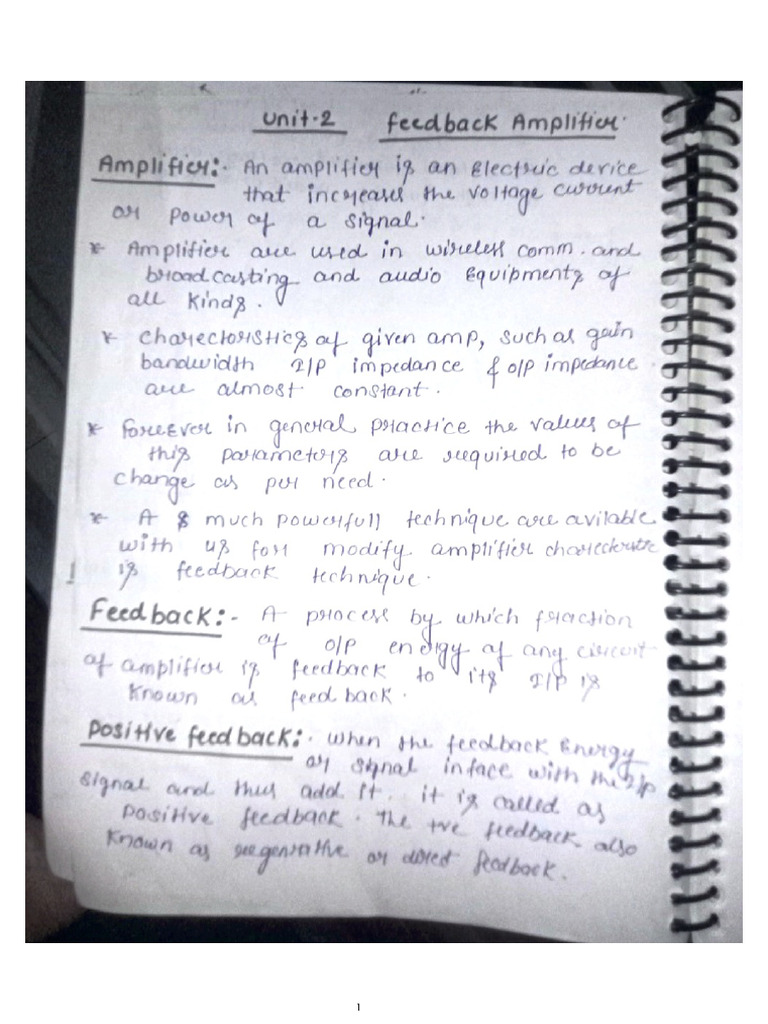 Unit-2 Feedback Amplifier.
Amplifier:- An amplifier is an Electric device
that increases the voltage current
or power of a signal.
* Amplifier are used in wireless comm. and
broad casting and audio Equipments of
all Kinds.
* Charectoristics of given amp, such as gain
bandwidth I/P impedance & O/P impedance.
are almost constant.
* foreEver in general practice the values of
this parameters are required to be
change as per need.
* A & much powerfull technique are avilable
with us for modify amplifier
is feedback technique.
Feedback:- A process by which fraction
of O/P energy of any circuit
of amplifier is feedback to its I/P is
Known as feed back.
Positive feedback:- When the feedback Energy
or signal inface with the I/p
signal and thus add it. it is called as
positive feedback. The +ve feedback also
Known as regenrative or direct feedback.
1